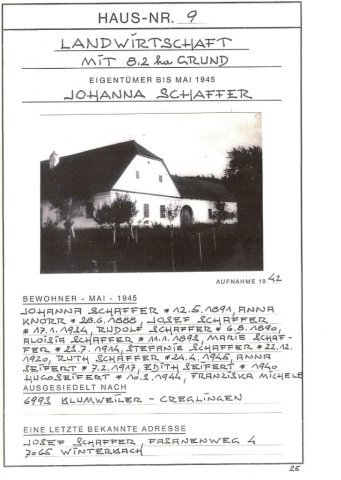 HAUS-NR. 9
LANDWIRTSCHAFT
MIT 8.2 ha GRUND
EIGENTÜMER BIS MAI 1945
JOHANNA SCHAFFER
AUFNAHME 1942
BEWOHNER - MAI - 1945
JOHANNA SCHAFFER * 12.5.1891, ANNA
KNORR * 28.6.1888, JOSEF SCHAFFER
* 17.1.1934, RUDOLF SCHAFFER * 6.8.1890,
ALOISIA SCHAFFER * 11.1.1893, MARIE SCHAF-
FER * 23.7.1914, STEFANIE SCHAFFER * 22.12.
1920, RUTH SCHAFFER * 24.4.1945, ANNA
SEIFERT * 7.2.1917, EDITH SEIFERT * 1940
HUGO SEIFERT * 10.3.1944, FRANZISKA MICHELE
AUSGESIEDELT NACH
6993 BLUMWEILER - CREGLINGEN
EINE LETZTE BEKANNTE ADRESSE
JOSEF SCHAFFER, FASANENWEG 4
7065 WINTERBACH
25